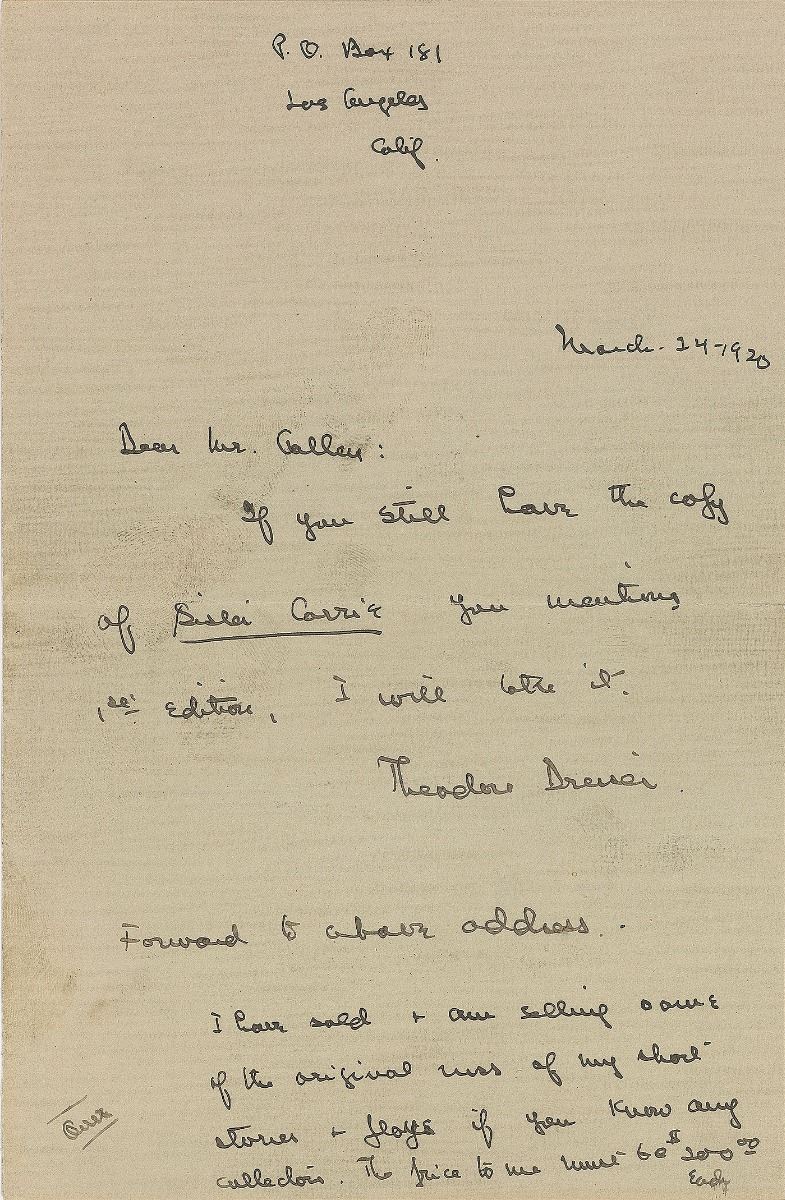 P. O. Box 181
Los Angeles
Calif.
March. 24-1920
Dear Mr.
If you still have the copy
of Sister Carrie you mention
1st edition, I will take it.
Theodore Dreiser.
Forward to above address.
I have sold + am selling some
of the original mss of my short
stories + plays if you know any
collectors. The price to me must be $200.00
Each
Over